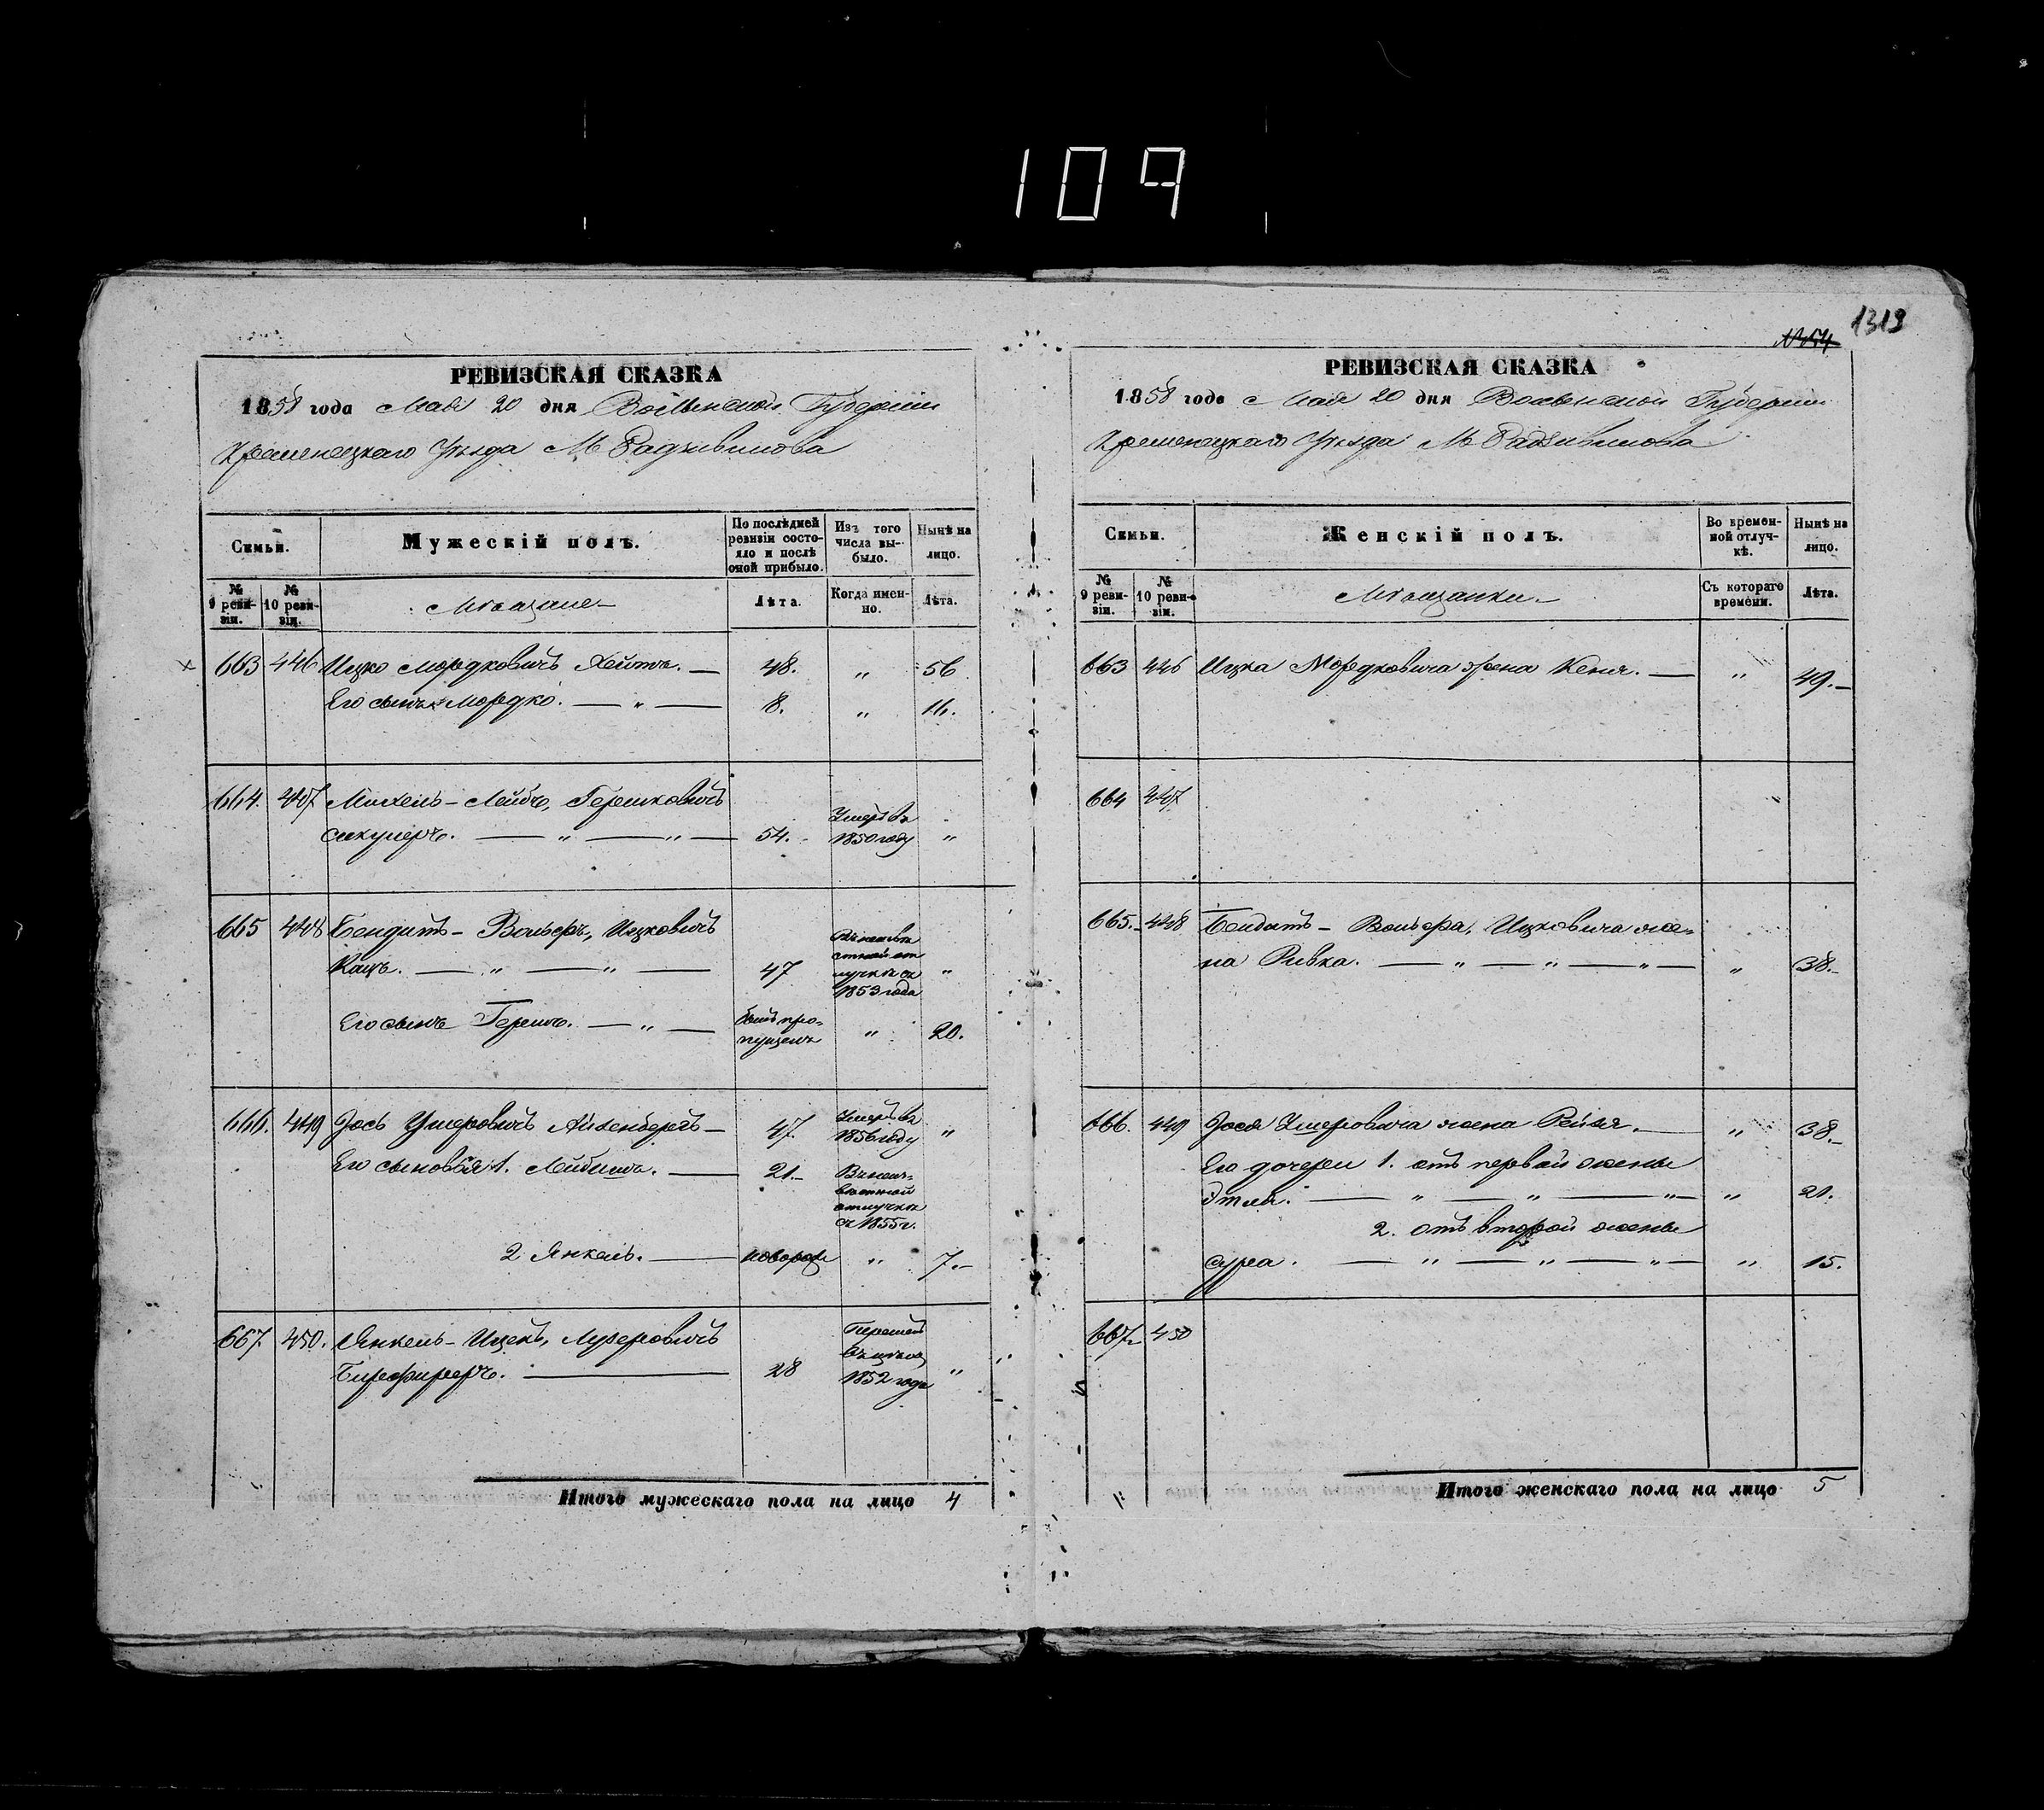 109
1319
РЕВИЗСКАЯ СКАЗКА
1858 года Мая 20 дня Волынской Губернии
Кременецкаго Уѣзда М Радзивилова
Семьи.
Мужескій полъ.
По послѣдней ревизіи состояло и послѣ оной прибыло.
Изъ того числа выбыло.
Нынѣ на лицо.
№ 9 ревизіи.
№ 10 ревизіи.
Мѣщане
Лѣта.
Когда именно.
Лѣта.
663 446 Ицко Мордковичъ 48. „ 56
Его сынъ Мордко. — „ — 8. „ 16.
664. 447 Михель-Лейбъ, Гершковичъ
54. Умеръ въ 1850 году „
665 448 Бендитъ- Вольфъ, Ицковичъ
Кацъ. — „ — „ — 47 Въ неизвѣстной отлучкѣ съ 1853 года „
Его сынъ Гершъ. — „ — былъ пропущенъ „ 20.
666. 449 Іось Умеровичъ Айхенбергъ — 47. Умеръ въ 1856 году „
Его сыновья 1. Лейбишъ. — 21. Въ неизвѣстной отлучкѣ съ 1855 г.
2 Янкель. — новорож „ 7.
667. 450. Янкель-Ицекъ, Лузеровичъ
28 1852 года „
Итого мужескаго пола на лицо 4
РЕВИЗСКАЯ СКАЗКА
1858 года Мая 20 дня Волынской Губерніи
Кременецкаго Уѣзда М Радзивилова
Семьи.
Женскій полъ.
Во временной отлучкѣ.
Нынѣ на лицо.
№ 9 ревизіи.
№ 10 ревизіи.
Мѣщанки.
Съ котораго времени.
Лѣта.
663 446 Ицка Мордковича жена Кеня. — „ 49.
664 447
665. 448 Бендитъ- Вольфа, Ицковича же-
на Ривка. — „ — „ — „ — „ 38.
666. 449 Іося Умеровича жена Рейзя. — „ 38.
Его дочери 1. отъ первой жены
Этля. — „ — „ — „ — „ 21.
2. отъ второй жены
Сура. — „ — „ — „ — „ 15.
667. 450
Итого женскаго пола на лицо 5